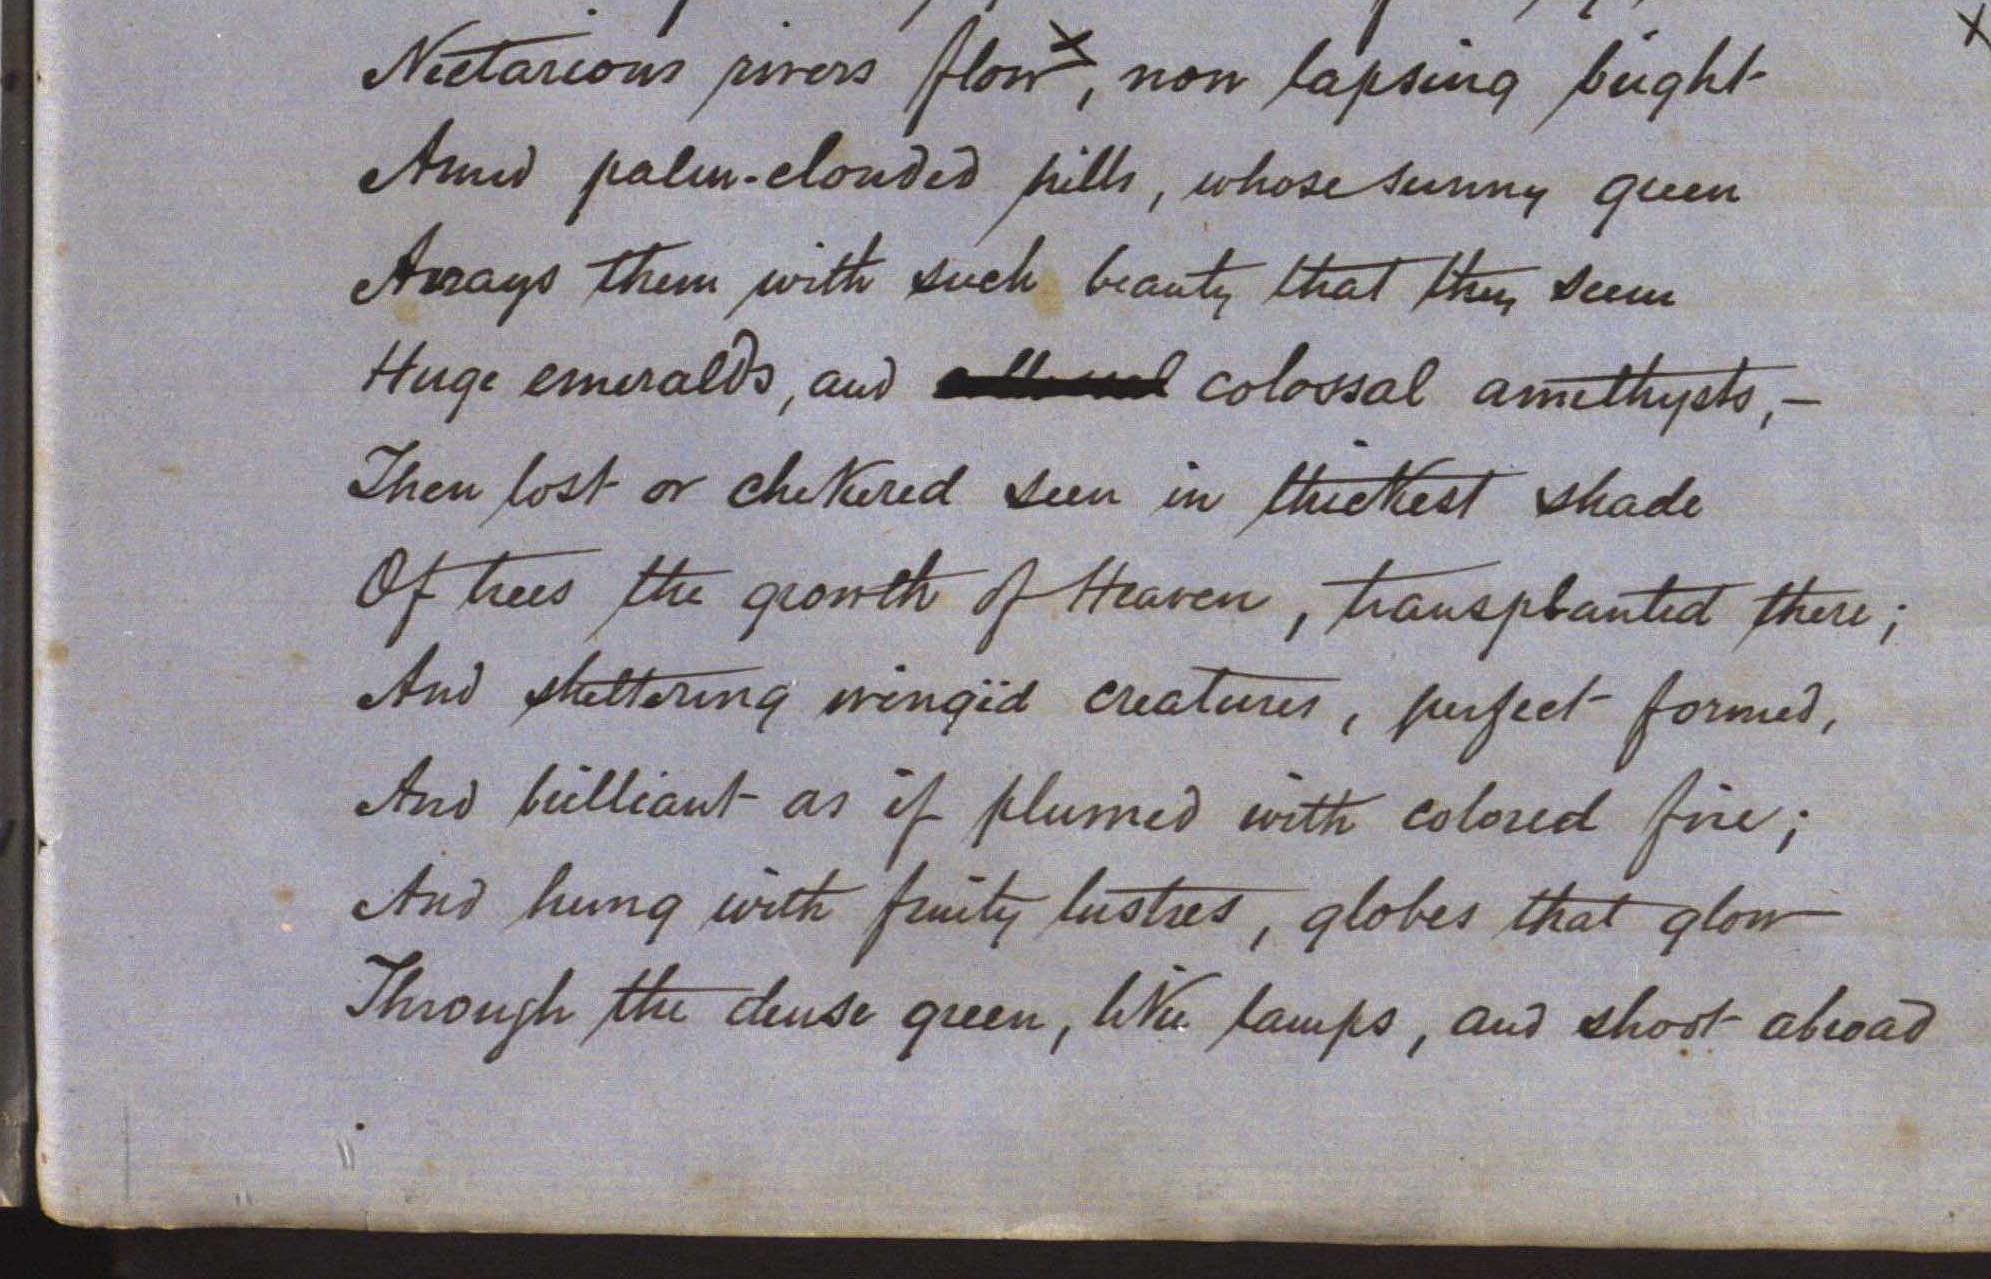 Nectareous rivers flow x, now lapsing bright
Amid palm-clouded hills, whose sunny green
Arrays them with such beauty that they seem
Huge emeralds, and colossal amethysts,—
Then lost or chekered seen in thickest shade
Of trees the growth of Heaven, transplanted there;
And sheltering wingëd creatures, perfect formed,
And brilliant as if plumed with colored fire;
And hung with fruity lustres, globes that glow
Through the dense green, like lamps, and shoot abroad